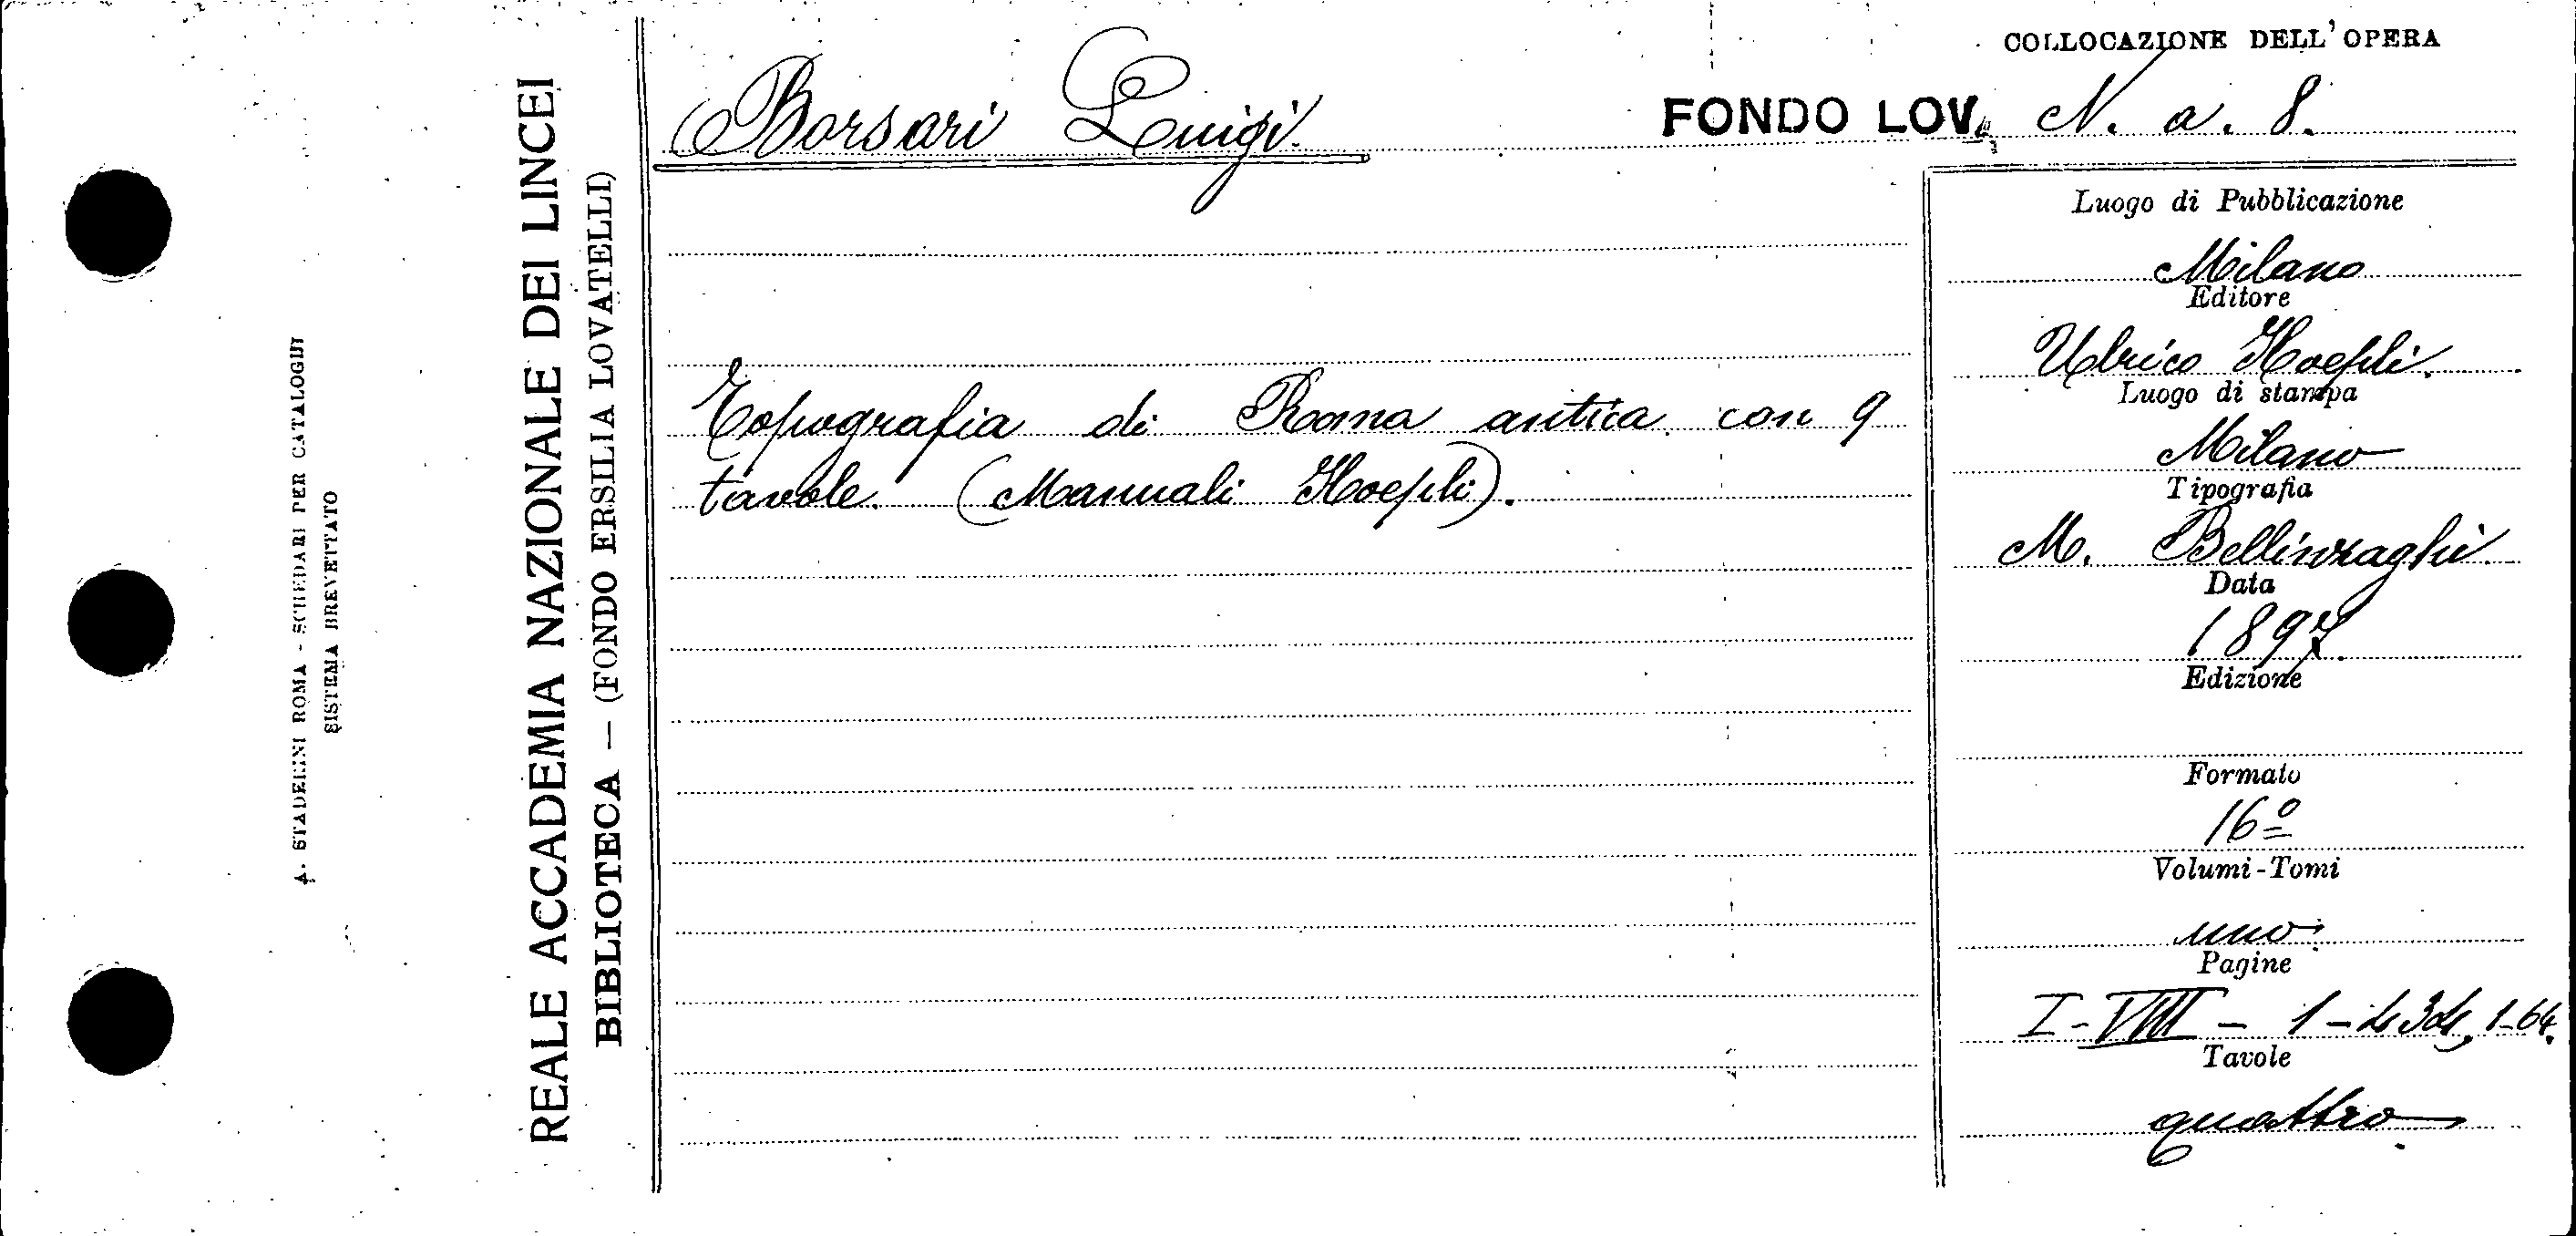 COLLOCAZIONE DELL'OPERA
Borsari Luigi.
FONDO LOV. N. a. 8.
Topografia di Roma antica con 9
tavole. (Manuali Hoepli).
Luogo di Pubblicazione
Milano
Editore
Ulrico Hoepli.
Luogo di stampa
Milano
Tipografia
M. Bellinzaghi.
Data
1897.
Edizione
Formato
16º
Volumi-Tomi
uno.
Pagine
I-VIII - 1-434, 1-64.
Tavole
quattro.
REALE ACCADEMIA NAZIONALE DEI LINCEI
BIBLIOTECA — (FONDO ERSILIA LOVATELLI)
A. STADERINI ROMA - SCHEDARI PER CATALOGHI
SISTEMA BREVETTATO